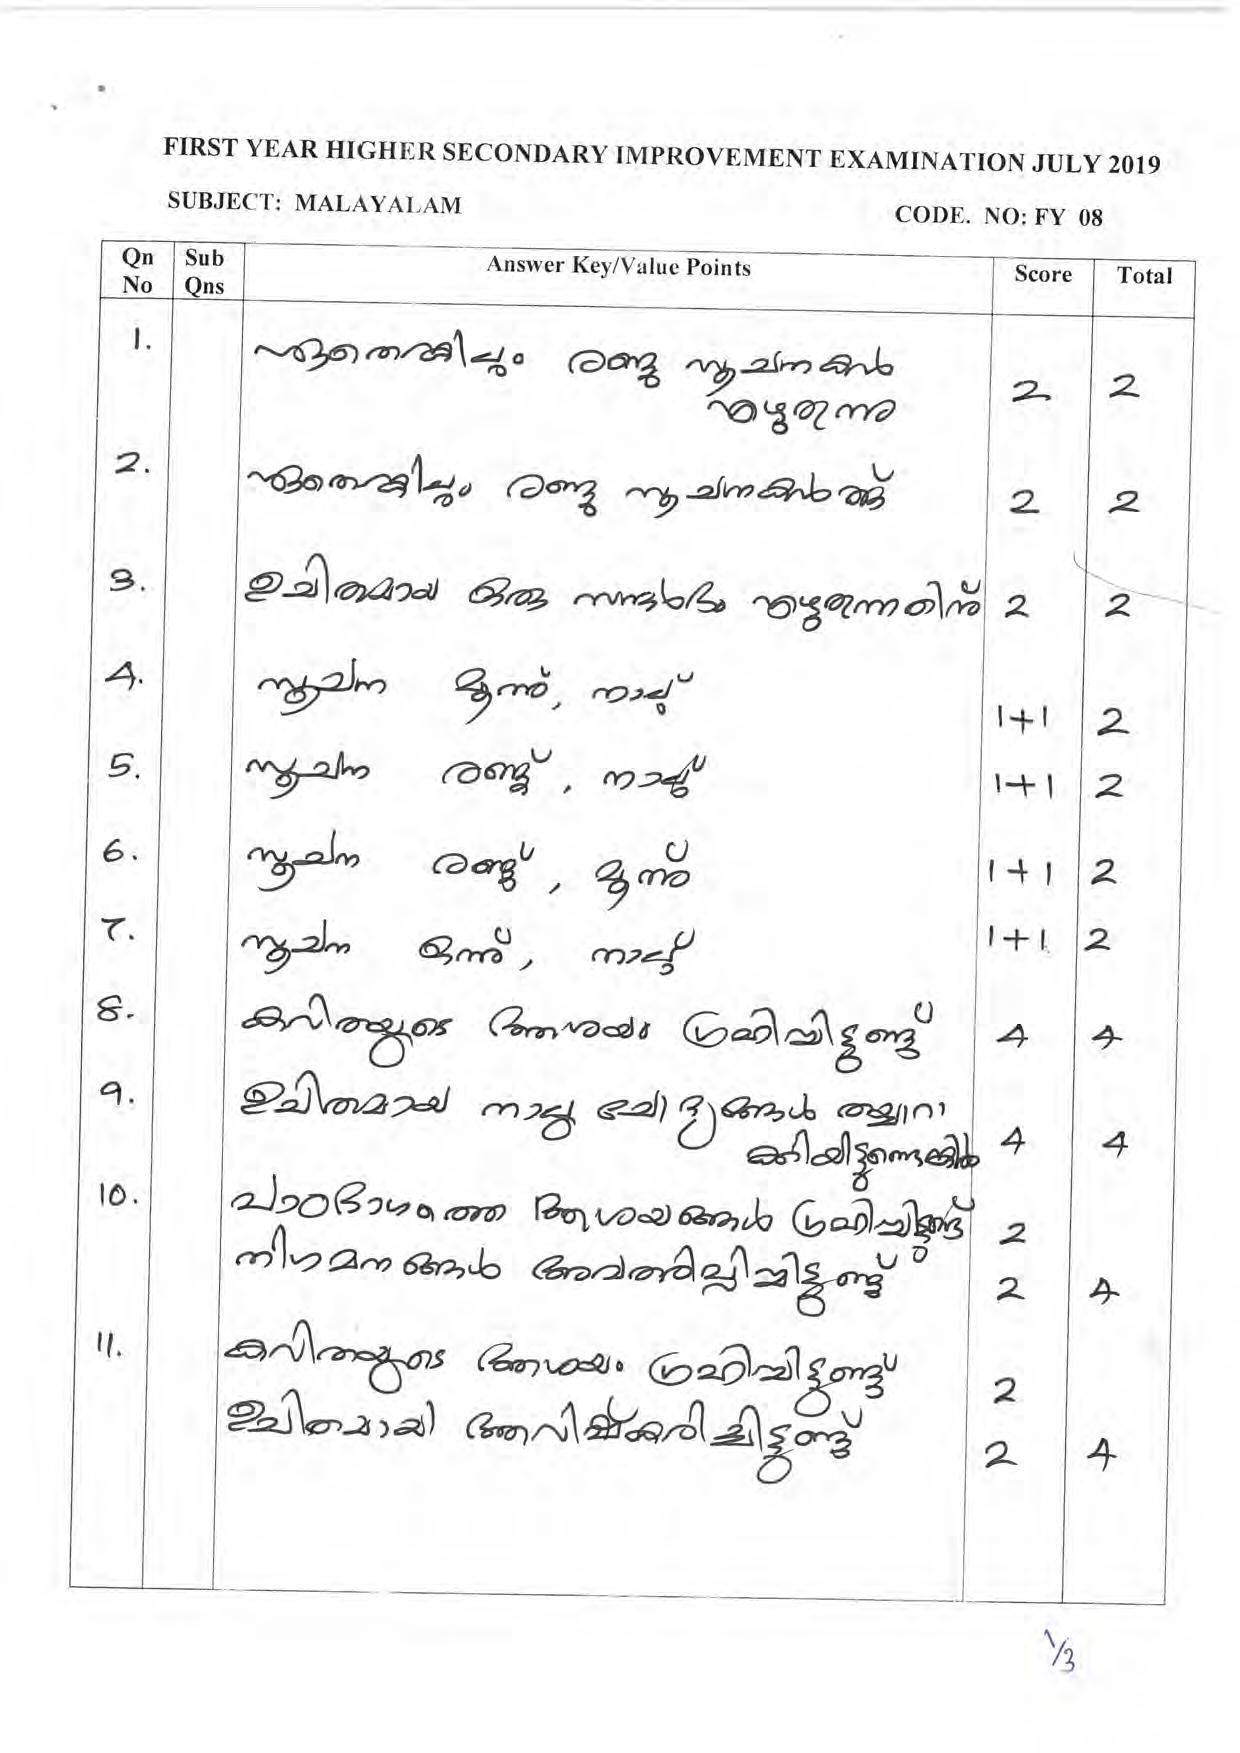 FIRST YEAR HIGHER SECONDARY IMPROVEMENT EXAMINATION JULY 2019
SUBJECT: MALAYALAM CODE. NO: FY 08
Qn No Sub Qns Answer Key/Value Points Score Total
1. ഏതെങ്കിലും രണ്ടു സൂചനകൾ
എഴുതുന്ന 2 2
2. ഏതെങ്കിലും രണ്ടു സൂചനകൾക്ക് 2 2
3. ഉചിതമായ ഒരു സന്ദർഭം എഴുതുന്നതിന് 2 2
4. സൂചന മൂന്ന്, നാല് 1+1 2
5. സൂചന രണ്ട്, നാല് 1+1 2
6. സൂചന രണ്ട്, മൂന്ന് 1+1 2
7. സൂചന ഒന്ന്, നാല് 1+1 2
8. കവിതയുടെ ആശയം ഗ്രഹിച്ചിട്ടുണ്ട് 4 4
9. ഉചിതമായ നാലു ചോദ്യങ്ങൾ തയ്യാറാ
ക്കിയിട്ടുണ്ടെങ്കിൽ 4 4
10. പാഠഭാഗത്തെ ആശയങ്ങൾ ഗ്രഹിച്ചിട്ടുണ്ട് 2
നിഗമനങ്ങൾ അവതരിപ്പിച്ചിട്ടുണ്ട് 2 4
11. കവിതയുടെ ആശയം ഗ്രഹിച്ചിട്ടുണ്ട് 2
ഉചിതമായി ആവിഷ്കരിച്ചിട്ടുണ്ട് 2 4
1/3